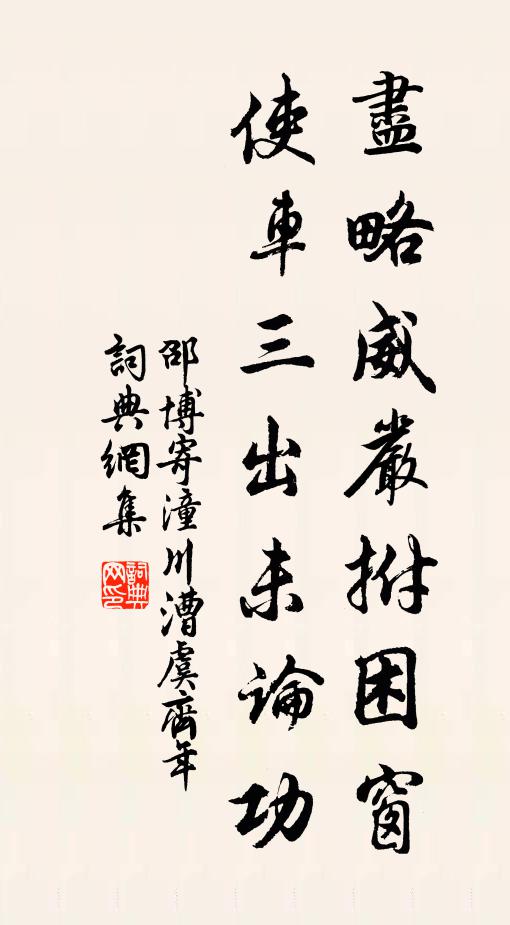 盡略威嚴拊困窗
使車三出未論功
邵博寄潼川漕虞齊年
詞典網集
詞典
网印